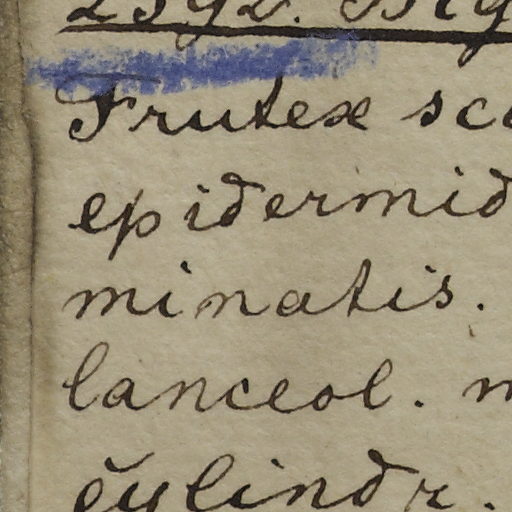 2392. Big
Frutex sc
epidermid
minatis.
lanceol. m
cylindr.